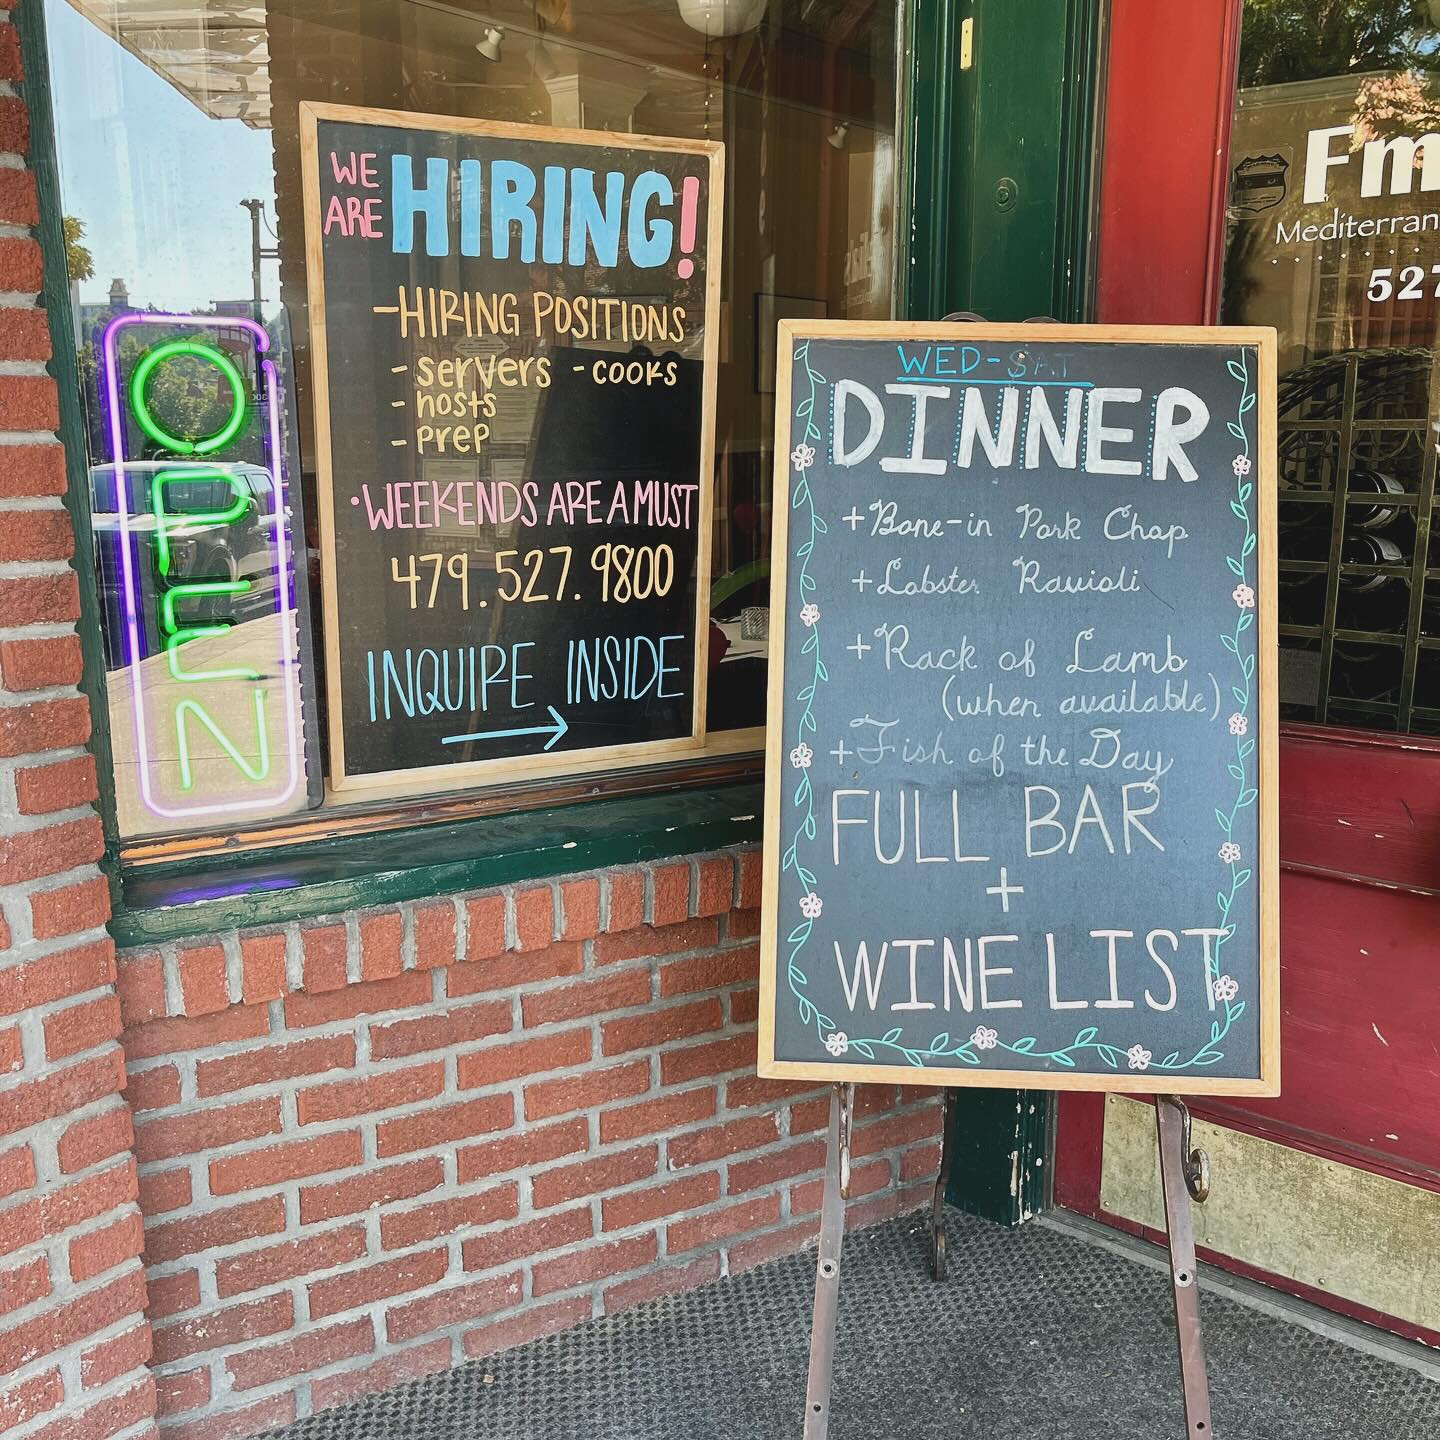 WE
ARE HIRING!
-HIRING POSITIONS
- servers - cooks
- hosts
- prep
•WEEKENDS ARE A MUST
479.527.9800
INQUIRE INSIDE
OPEN
WED-SAT
DINNER
+Bone-in Pork Chop
+Lobster Ravioli
+Rack of Lamb
(when available)
+Fish of the Day
FULL BAR
+
WINE LIST
Fm
Mediterran
527